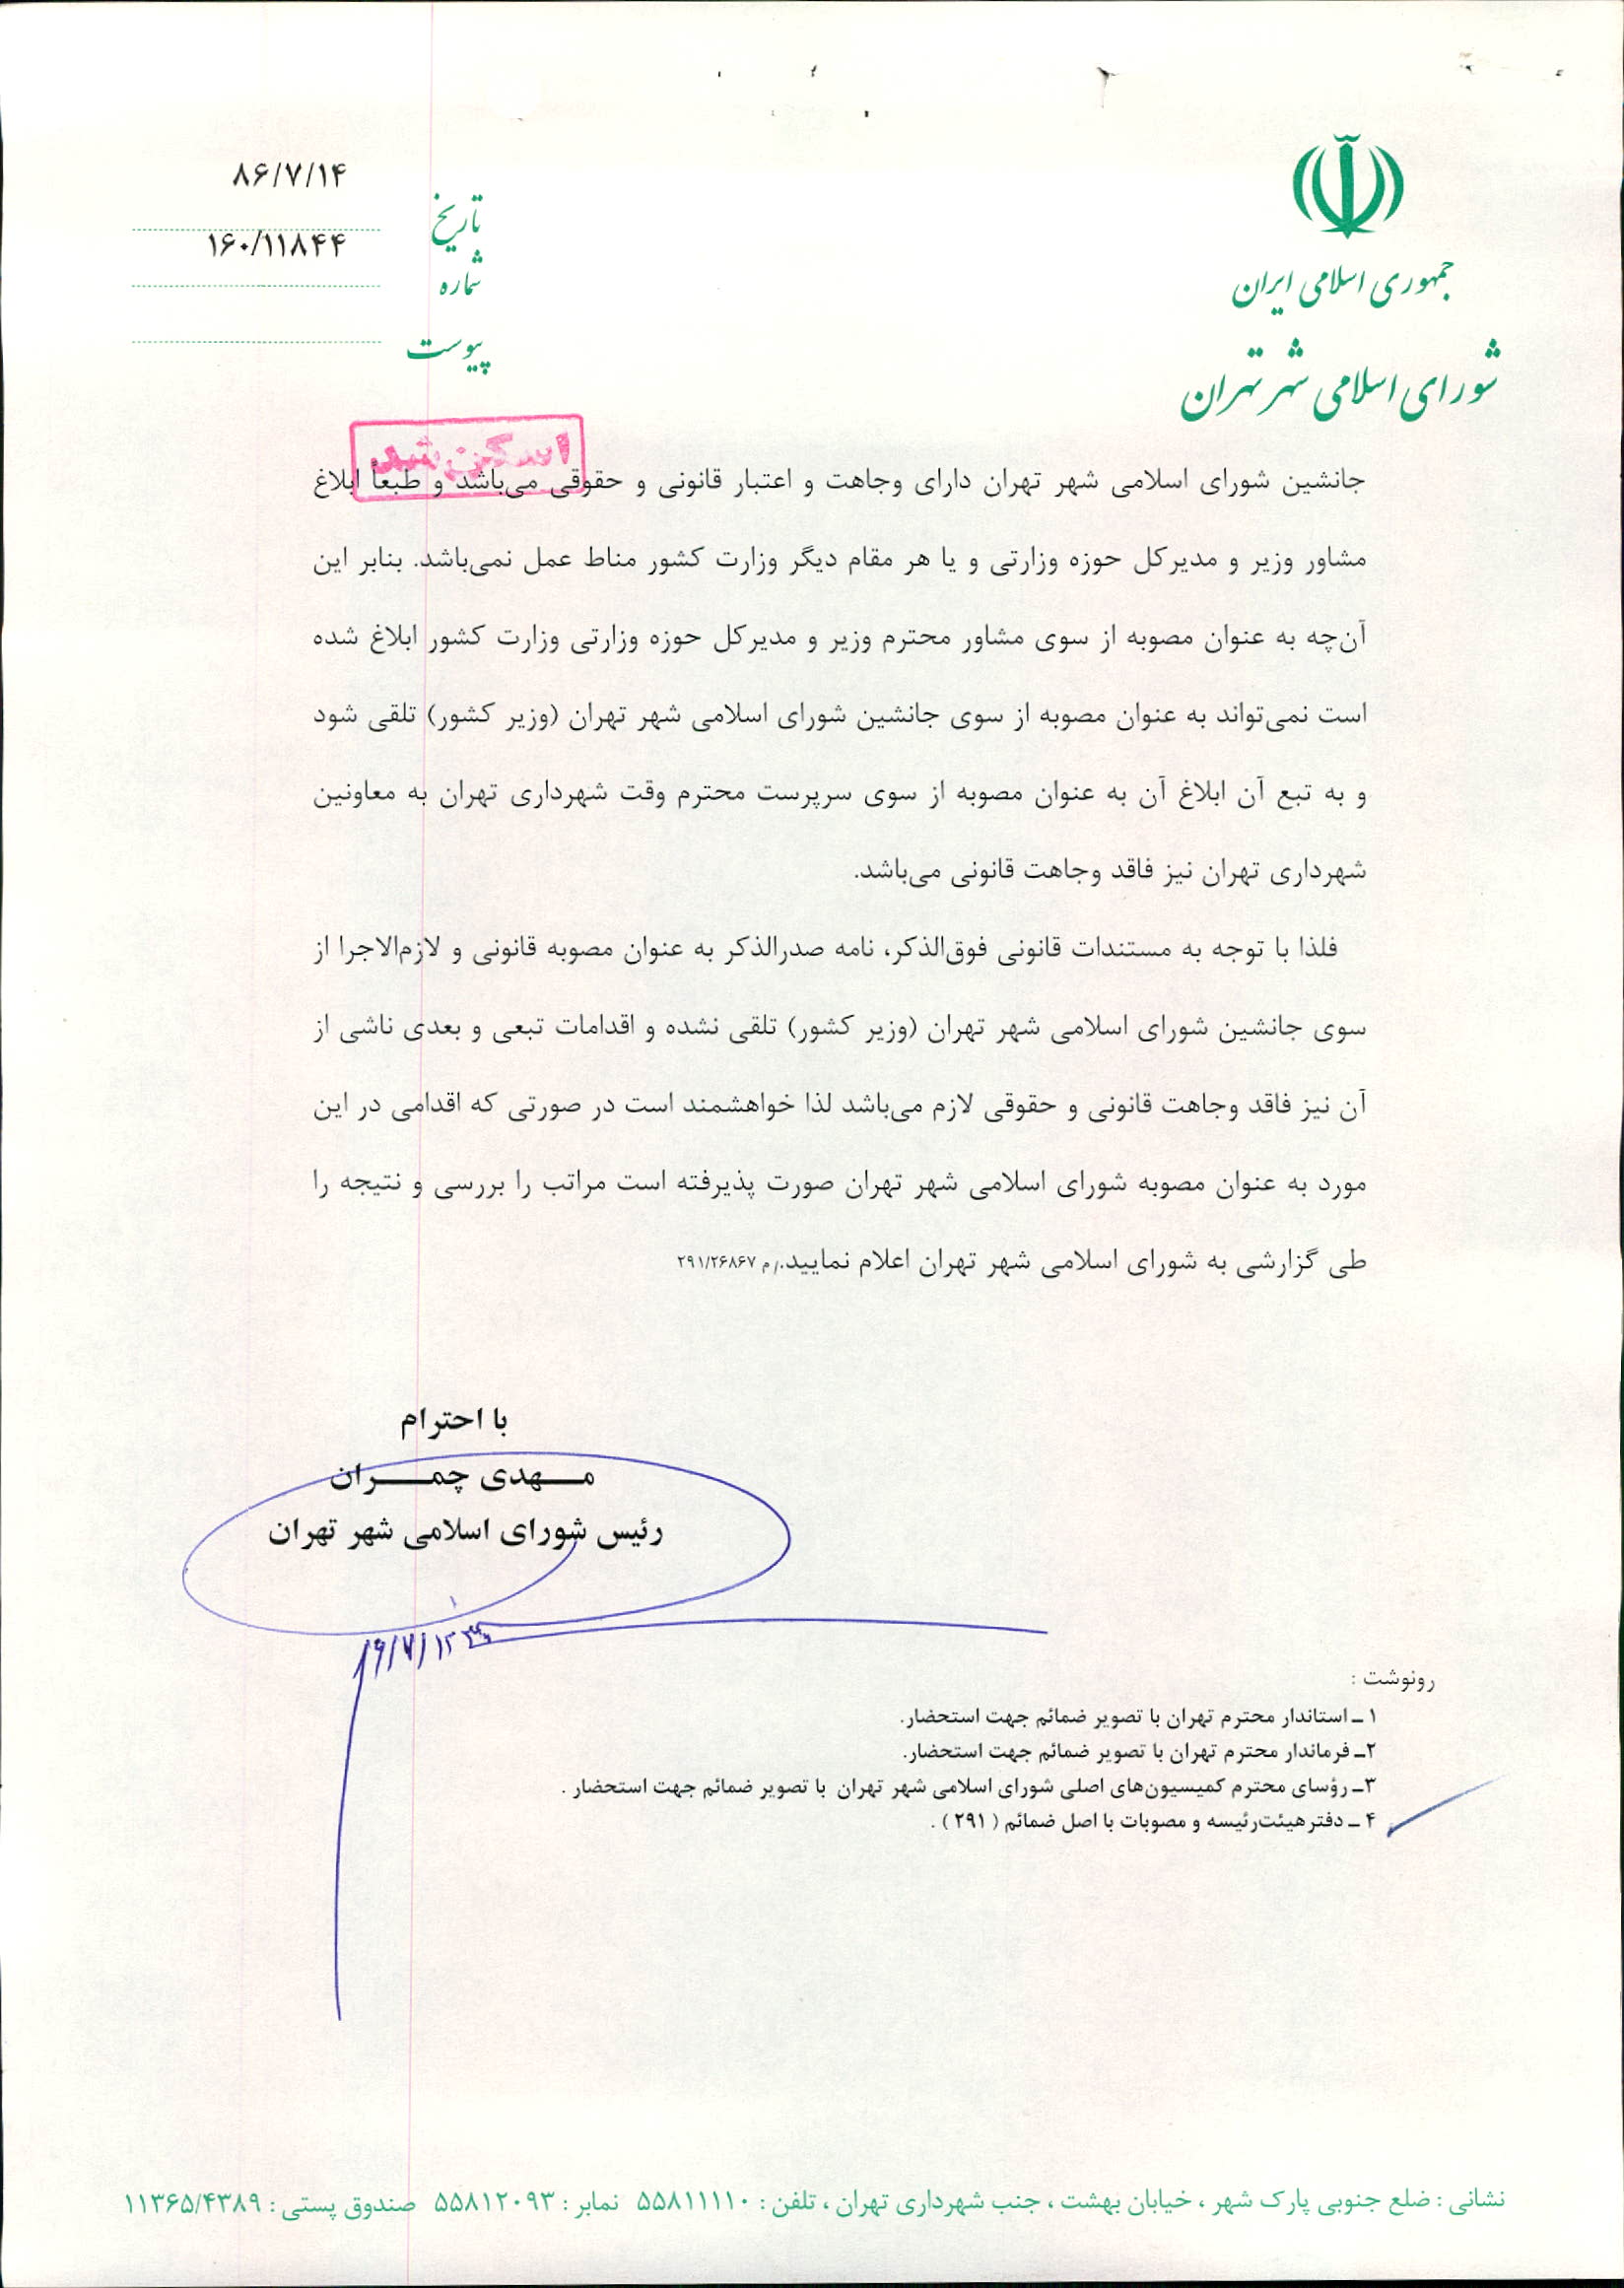 جمهوری اسلامی ایران
شورای اسلامی شهر تهران
تاریخ ۸۶/۷/۱۴
شماره ۱۶۰/۱۱۸۴۴
پیوست
اسکن شد
جانشین شورای اسلامی شهر تهران دارای وجاهت و اعتبار قانونی و حقوقی می‌باشد و طبعاً ابلاغ
مشاور وزیر و مدیرکل حوزه وزارتی و یا هر مقام دیگر وزارت کشور مناط عمل نمی‌باشد. بنابر این
آن‌چه به عنوان مصوبه از سوی مشاور محترم وزیر و مدیرکل حوزه وزارتی وزارت کشور ابلاغ شده
است نمی‌تواند به عنوان مصوبه از سوی جانشین شورای اسلامی شهر تهران (وزیر کشور) تلقی شود
و به تبع آن ابلاغ آن به عنوان مصوبه از سوی سرپرست محترم وقت شهرداری تهران به معاونین
شهرداری تهران نیز فاقد وجاهت قانونی می‌باشد.
فلذا با توجه به مستندات قانونی فوق‌الذکر، نامه صدرالذکر به عنوان مصوبه قانونی و لازم‌الاجرا از
سوی جانشین شورای اسلامی شهر تهران (وزیر کشور) تلقی نشده و اقدامات تبعی و بعدی ناشی از
آن نیز فاقد وجاهت قانونی و حقوقی لازم می‌باشد لذا خواهشمند است در صورتی که اقدامی در این
مورد به عنوان مصوبه شورای اسلامی شهر تهران صورت پذیرفته است مراتب را بررسی و نتیجه را
طی گزارشی به شورای اسلامی شهر تهران اعلام نمایید./م ۲۹۱/۲۶۸۶۷
با احترام
مـــهدی چمــــــران
رئیس شورای اسلامی شهر تهران
رونوشت :
۱ ــ استاندار محترم تهران با تصویر ضمائم جهت استحضار.
۲ــ فرماندار محترم تهران با تصویر ضمائم جهت استحضار.
۳ــ رؤسای محترم کمیسیون‌های اصلی شورای اسلامی شهر تهران با تصویر ضمائم جهت استحضار .
۴ ــ دفتر هیئت‌رئیسه و مصوبات با اصل ضمائم ( ۲۹۱ ) .
نشانی : ضلع جنوبی پارک شهر ، خیابان بهشت ، جنب شهرداری تهران ، تلفن : ۵۵۸۱۱۱۱۰ نمابر : ۵۵۸۱۲۰۹۳ صندوق پستی : ۱۱۳۶۵/۴۳۸۹